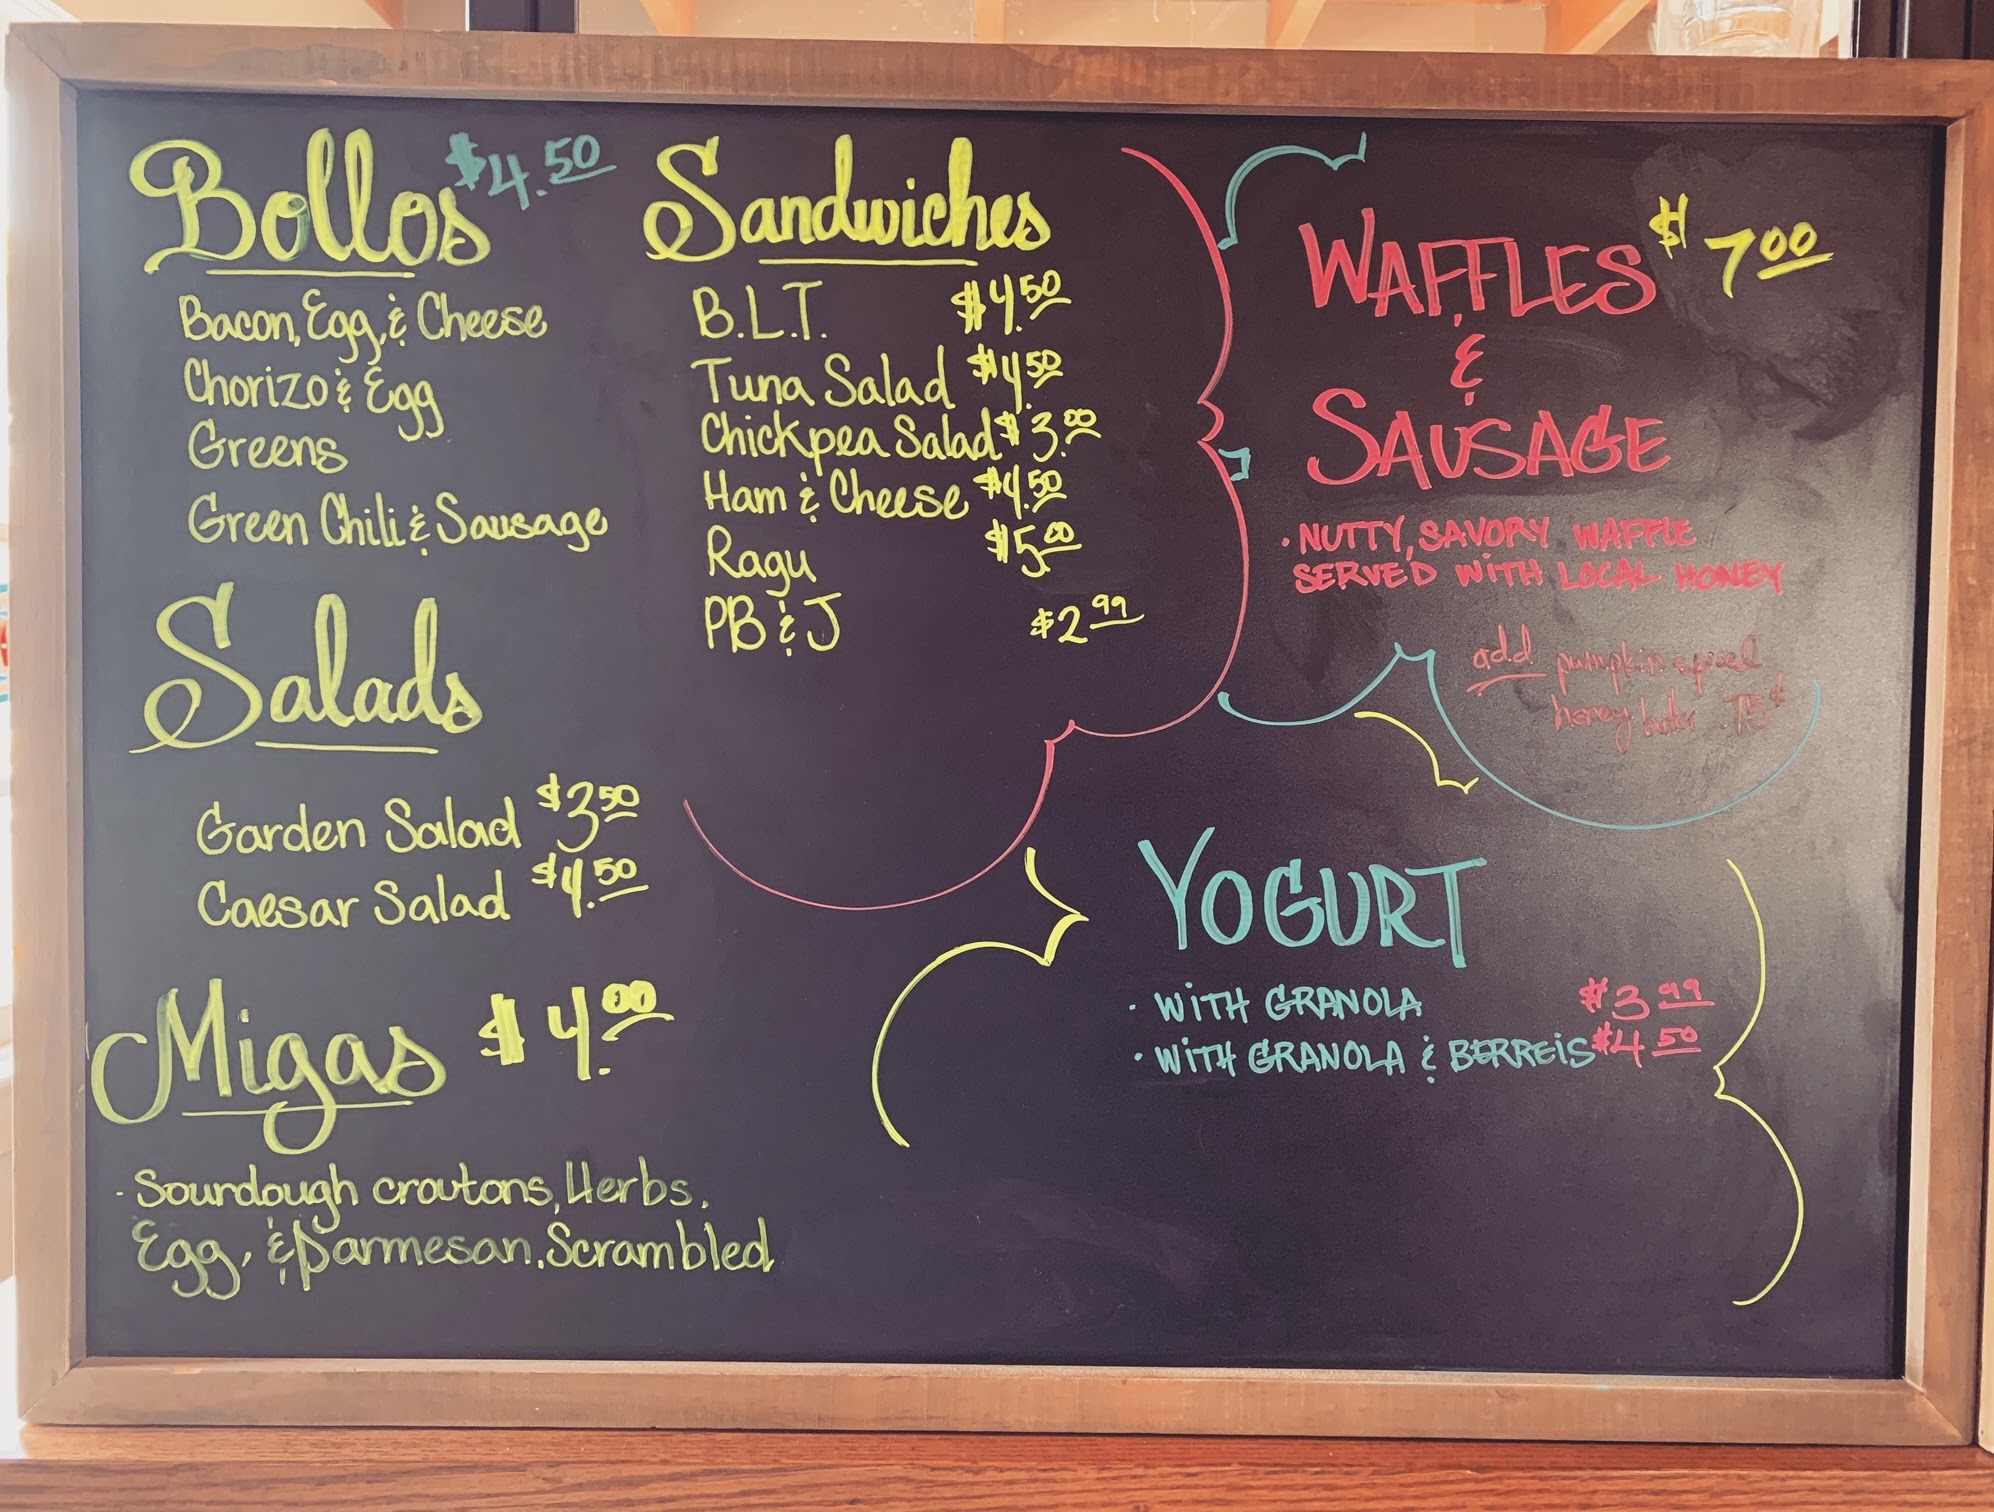 Bollos $4.50
Bacon, Egg, & Cheese
Chorizo & Egg
Greens
Green Chili & Sausage
Salads
Garden Salad $3.50
Caesar Salad $4.50
Migas $4.00
· Sourdough croutons, Herbs,
Egg, & Parmesan. Scrambled
Sandwiches
B.L.T. $4.50
Tuna Salad $4.50
Chickpea Salad $3.00
Ham & Cheese $4.50
Ragu $5.00
PB & J $2.99
WAFFLES $7.00
&
SAUSAGE
· NUTTY, SAVORY WAFFLE
SERVED WITH LOCAL HONEY
add pumpkin spice
honey butter .75¢
YOGURT
· WITH GRANOLA $3.99
· WITH GRANOLA & BERREIS $4.50